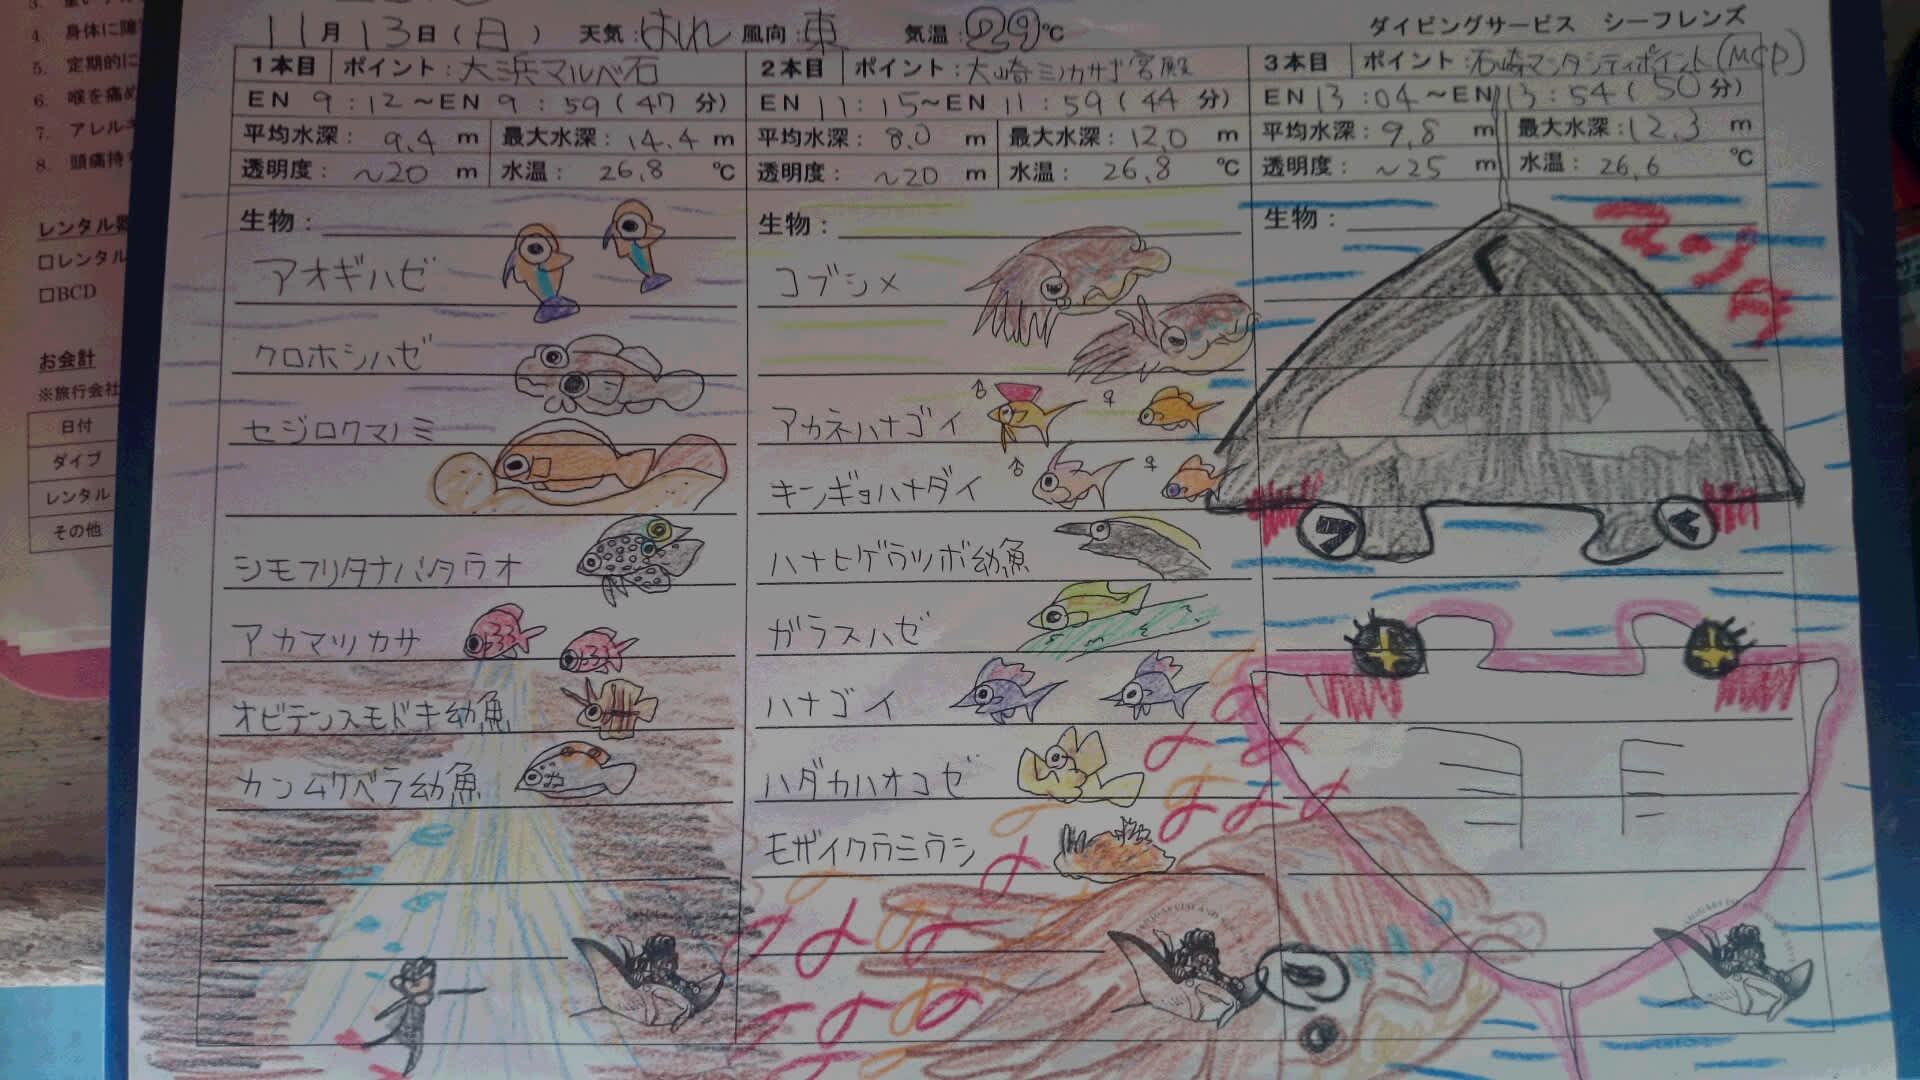 4. 身体に障
5. 定期的に
6. 喉を痛め
7. アレルギ
8. 頭痛持
レンタル器
□レンタル
□BCD
お会計
※旅行会社
日付
ダイブ
レンタル
その他
11月13日(日) 天気:はれ 風向:東 気温:29℃
ダイビングサービス シーフレンズ
1本目 ポイント:大浜マルベ石
EN 9:12～EN 9:59(47分)
平均水深:9.4m 最大水深:14.4m
透明度:~20m 水温:26.8℃
生物:
アオギハゼ
クロホシハゼ
セジロクマノミ
シモフリタナバタウオ
アカマツカサ
オビテンスモドキ幼魚
カンムリベラ幼魚
2本目 ポイント:大崎ミノカサゴ宮殿
EN 11:15～EN 11:59(44分)
平均水深:8.0m 最大水深:12.0m
透明度:~20m 水温:26.8℃
生物:
コブシメ
アカネハナゴイ
♂ ♀
キンギョハナダイ
♂ ♀
ハナヒゲウツボ幼魚
ガラスハゼ
ハナゴイ
ハダカハオコゼ
モザイクウミウシ
3本目 ポイント:石崎マンタシティポイント(MCP)
EN 13:04～EN 13:54(50分)
平均水深:9.8m 最大水深:12.3m
透明度:~25m 水温:26.6℃
生物:
マンタ